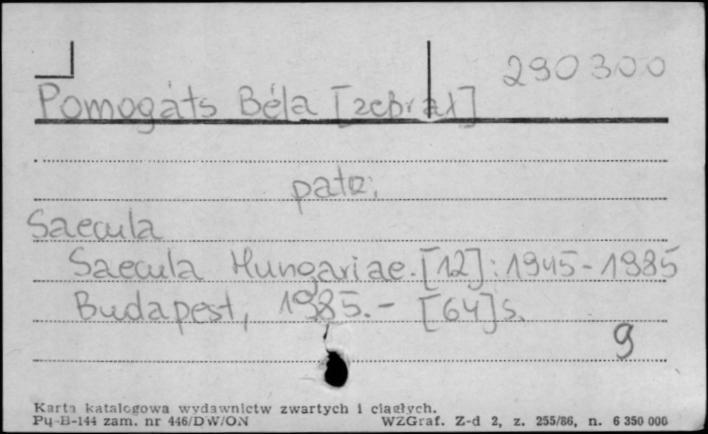 290300
Pomogáts Béla [zebrał]
patz:
Saecula
Saecula Hungariae. [12]: 1945-1985
Budapest, 1985. - [64]s.
9
Karta katalogowa wydawnictw zwartych i ciągłych.
Pu-B-144 zam. nr 446/DW/ON WZGraf. Z-d 2, z. 255/86, n. 6 350 000